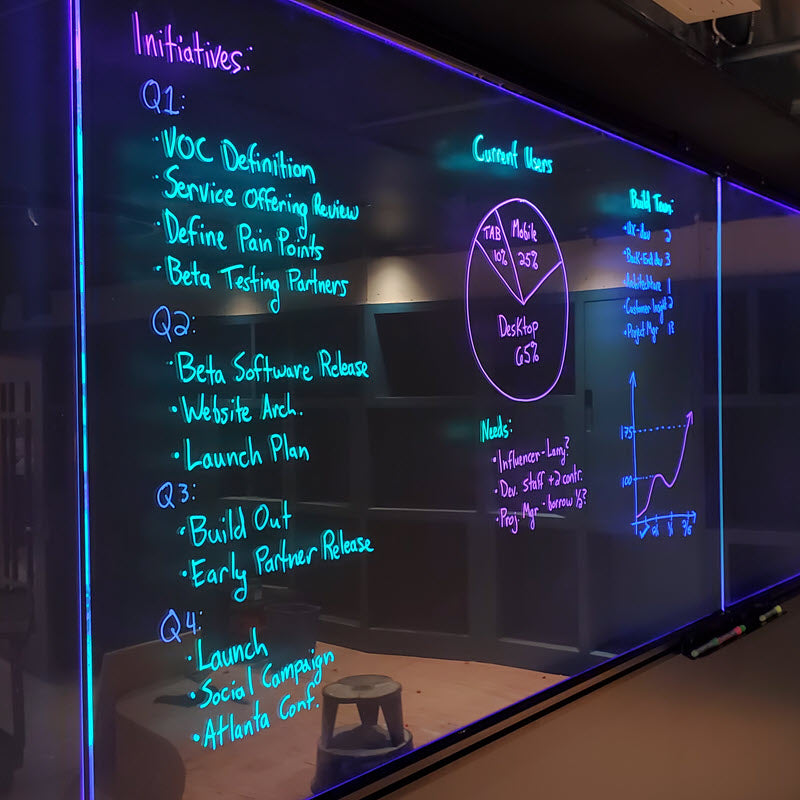 Initiatives:
Q1:
· VOC Definition
· Service Offering Review
· Define Pain Points
· Beta Testing Partners
Q2:
· Beta Software Release
· Website Arch.
· Launch Plan
Q3:
· Build Out
· Early Partner Release
Q4:
· Launch
· Social Campaign
· Atlanta Conf.
Current Users
TAB
10%
Mobile
25%
Desktop
65%
Needs:
· Influencer - Larry?
· Dev. Staff +2 contr.
· Proj. Mgr - borrow 1/2?
Build Team:
2
· Back-End dev 3
· Architecture 1
· Customer Insight 2
· Project Mgr
175
100